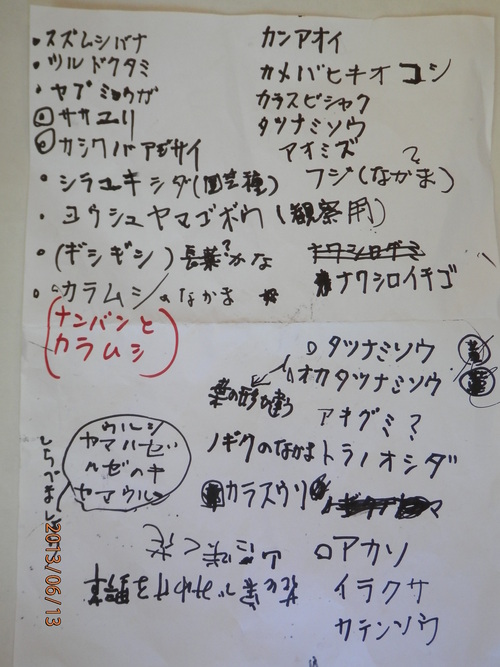 ・スズムシバナ
・ツルドクタミ
・ヤブミョウガ
◎ササユリ
◎カシワバアジサイ
・シラユキシダ(園芸種)
・ヨウシュヤマゴボウ(観察用)
・(ギシギシ)長葉?かな
・カラムシのなかま
(ナンバンと
カラムシ)
カンアオイ
カメバヒキオコシ
カラスビシャク
タツナミソウ
アオミズ
フジ(なかま)?
ナワシロイチゴ
□タツナミソウ
△オカタツナミソウ
葉の形が違う
アキグミ?
ノギクのなかま
トラノオシダ
カラスウリ
□アカソ
イラクサ
カテンソウ
ウルシ
ヤマハゼ
ハゼノキ
ヤマウルシ
しらべましょ
に咲く花
2013/06/13